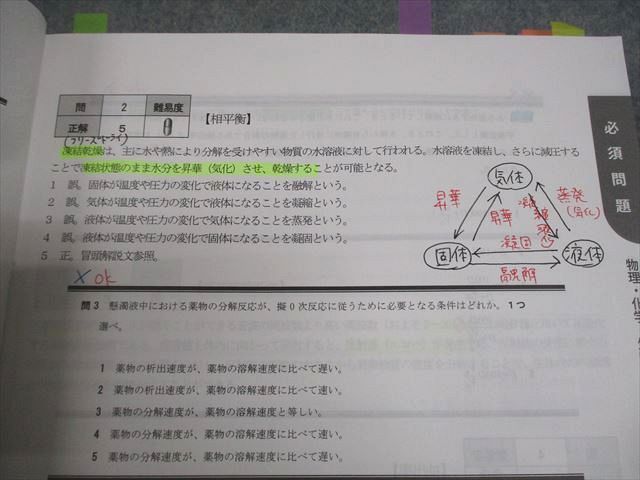 問 2 難易度
正解 5
【相平衡】
(フリーズドライ)
凍結乾燥は、主に水や熱により分解を受けやすい物質の水溶液に対して行われる。水溶液を凍結し、さらに減圧する
ことで凍結状態のまま水分を昇華（気化）させ、乾燥することが可能となる。
1 誤。固体が温度や圧力の変化で液体になることを融解という。
2 誤。気体が温度や圧力の変化で液体になることを凝縮という。
3 誤。液体が温度や圧力の変化で気体になることを蒸発という。
4 誤。液体が温度や圧力の変化で固体になることを凝固という。
5 正。冒頭解説文参照。
× ok
気体
昇華
昇華
蒸発
(気化)
固体
凝固
液体
融解
問3 懸濁液中における薬物の分解反応が、擬0次反応に従うために必要となる条件はどれか。1つ
選べ。
1 薬物の析出速度が、薬物の溶解速度に比べて遅い。
2 薬物の析出速度が、薬物の溶解速度に比べて速い。
3 薬物の分解速度が、薬物の溶解速度と等しい。
4 薬物の分解速度が、薬物の溶解速度に比べて遅い。
5 薬物の分解速度が、薬物の溶解速度に比べて速い。
必須問題
物理・化学・